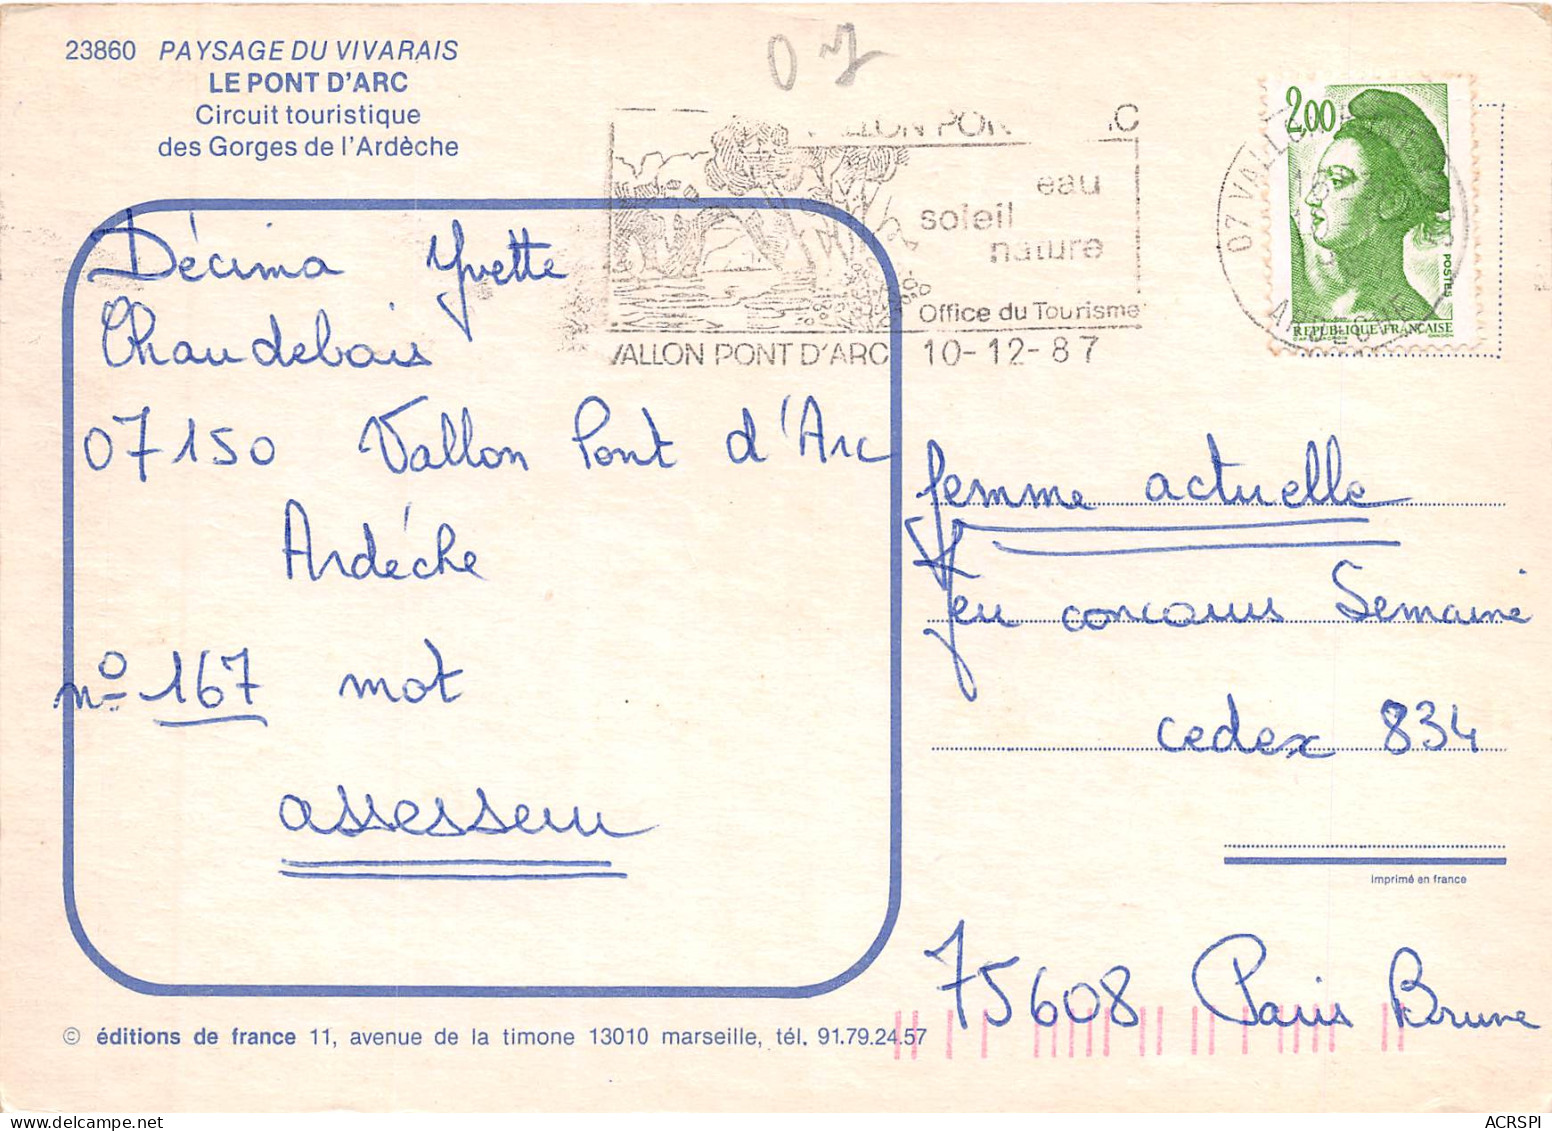 23860 PAYSAGE DU VIVARAIS
LE PONT D'ARC
Circuit touristique
des Gorges de l'Ardèche
07
eau
soleil
nature
Office du Tourisme
VALLON PONT D'ARC 10-12-87
2,00
POSTES
REPUBLIQUE FRANÇAISE
Décima Yvette
Chaudebois
07150 Vallon Pont d'Arc
Ardèche
nº 167 mot
assesseur
femme actuelle
Jeu concours Semaine
cedex 834
imprimé en france
75608 Paris Brune
© éditions de france 11, avenue de la timone 13010 marseille, tél. 91.79.24.57
ACRSPI